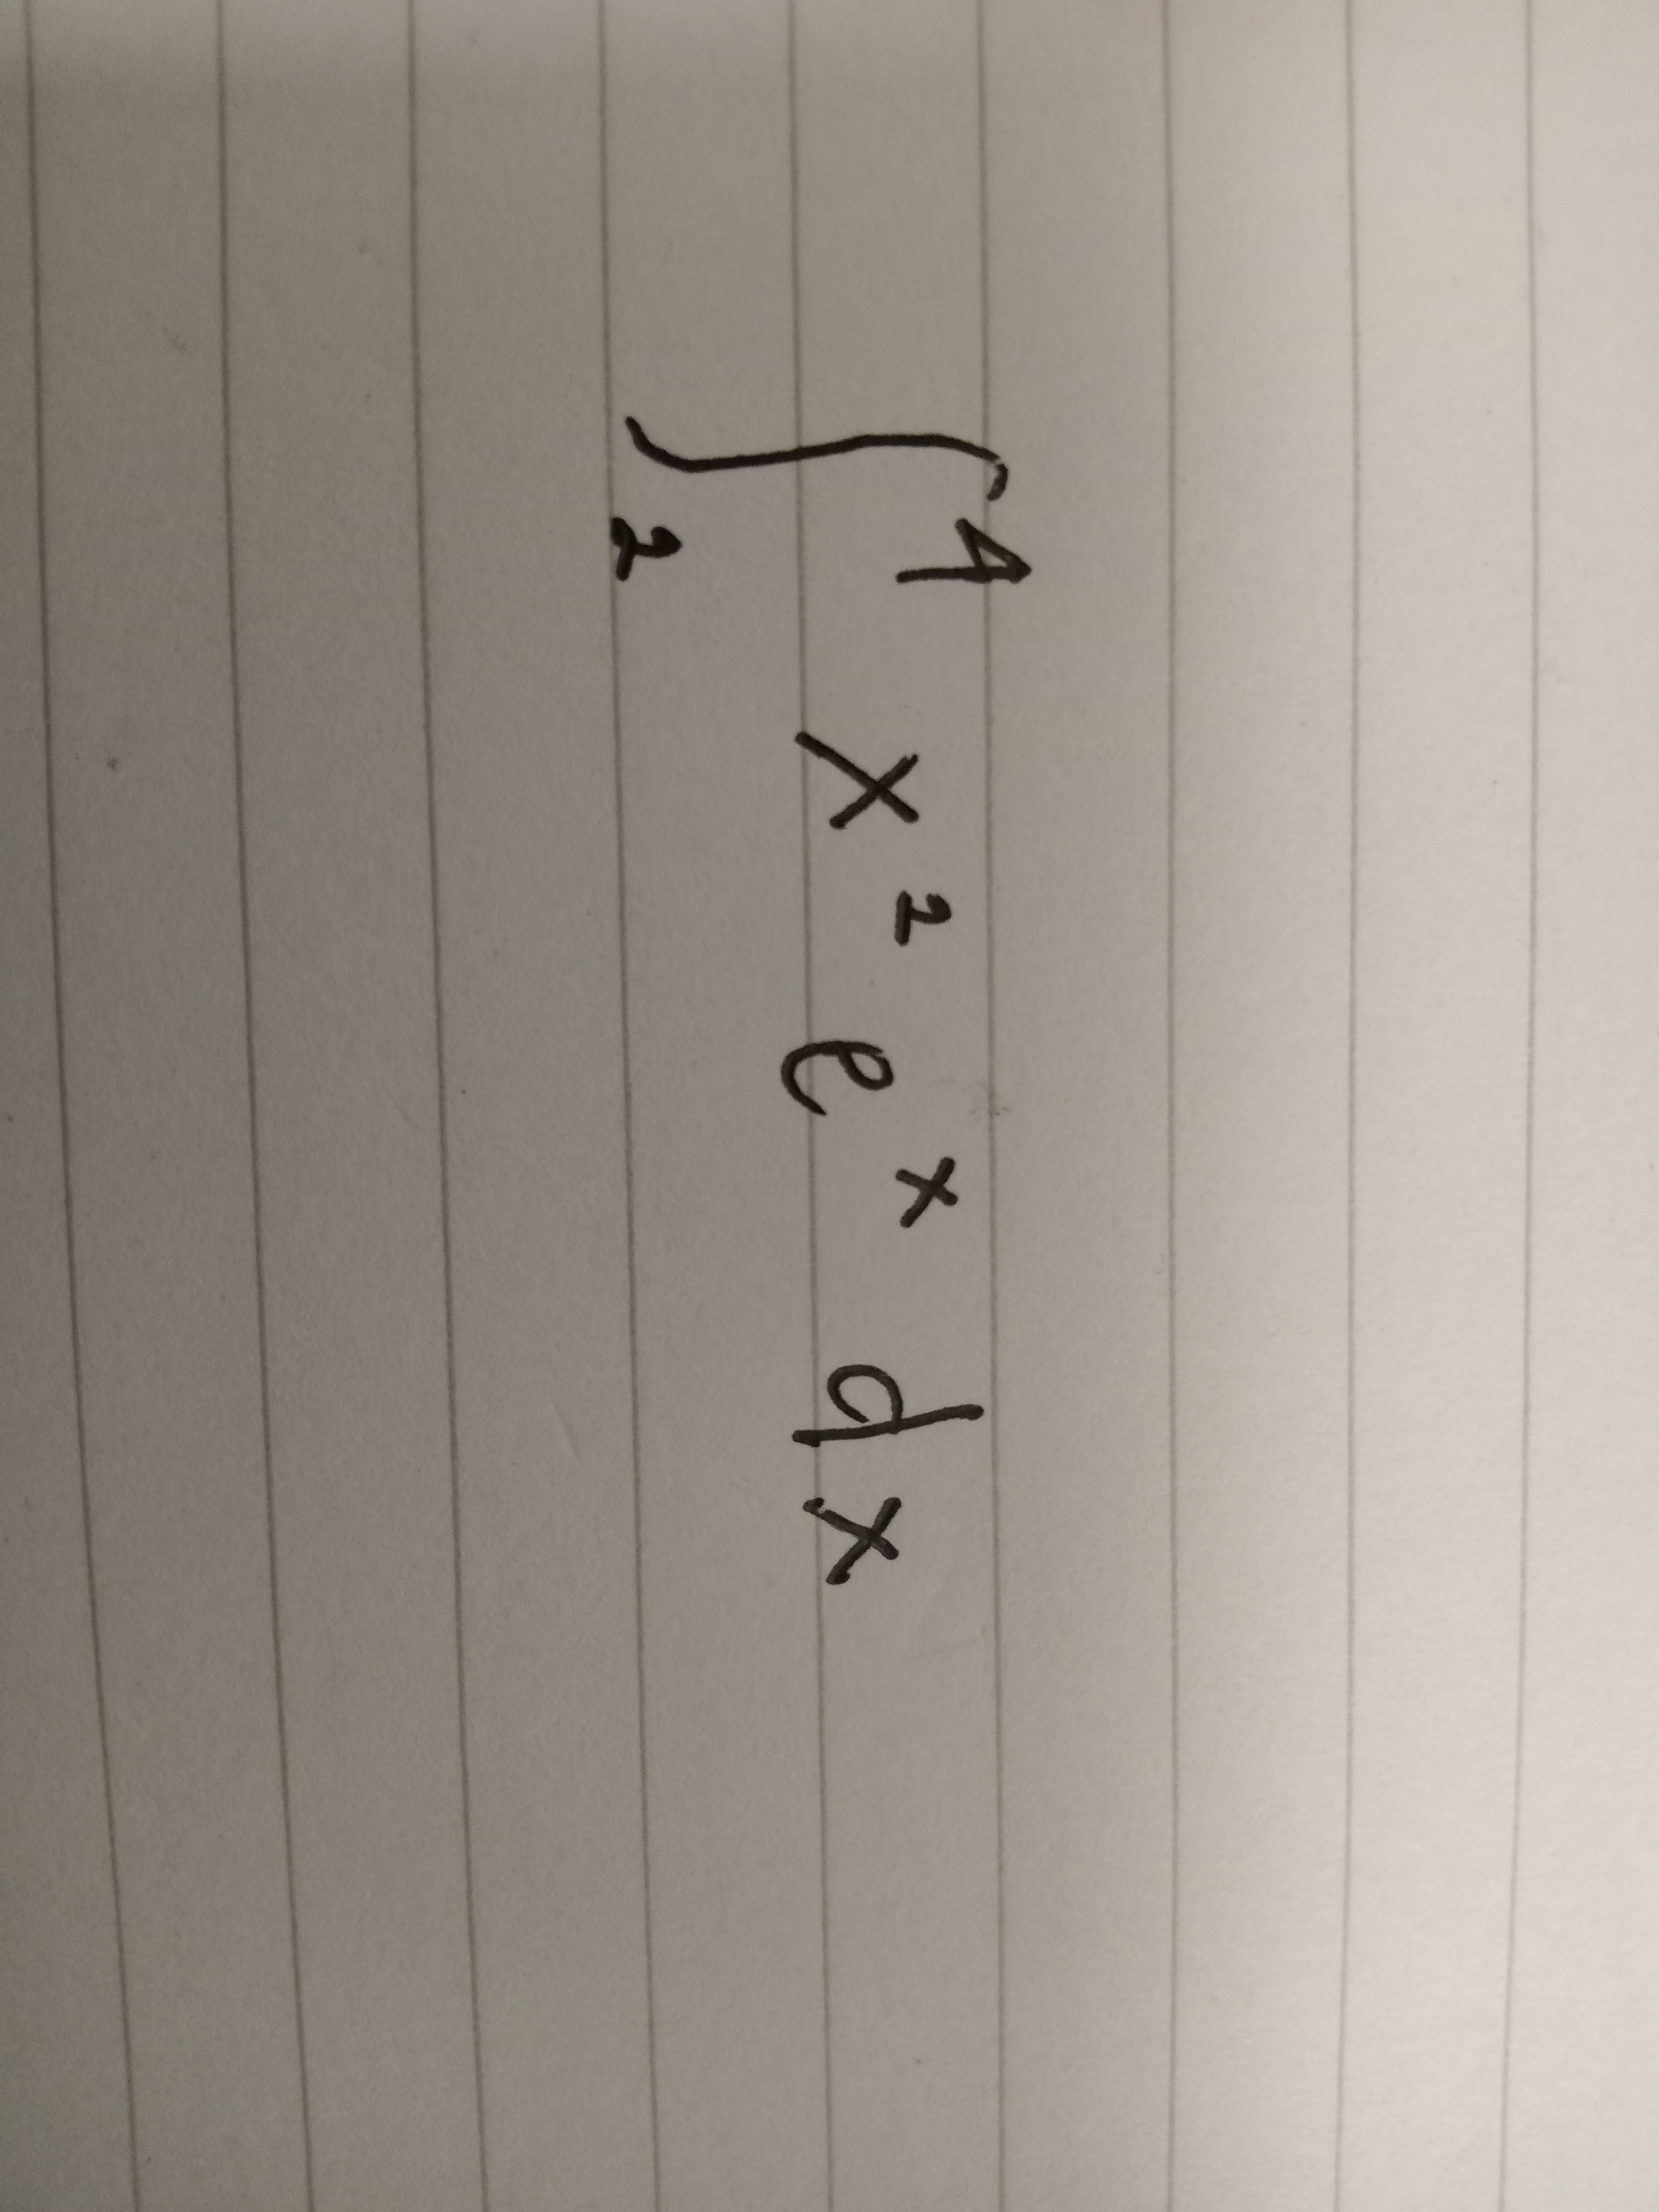 ∫₂⁴ x² eˣ dx